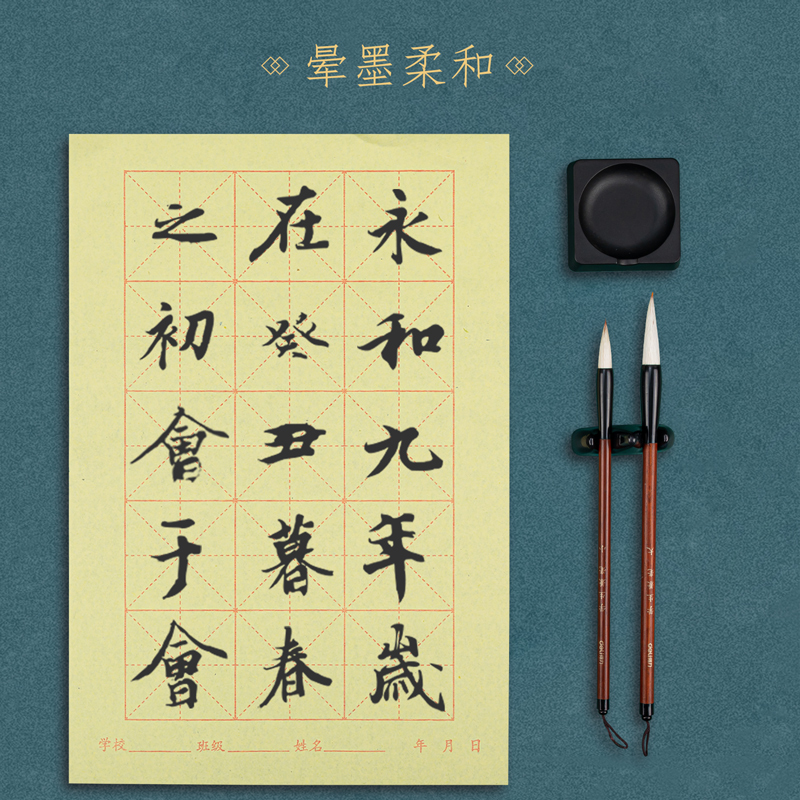 晕墨柔和
永和九年歲
在癸丑暮春
之初會于會
学校________ 班级________ 姓名________ 年 月 日